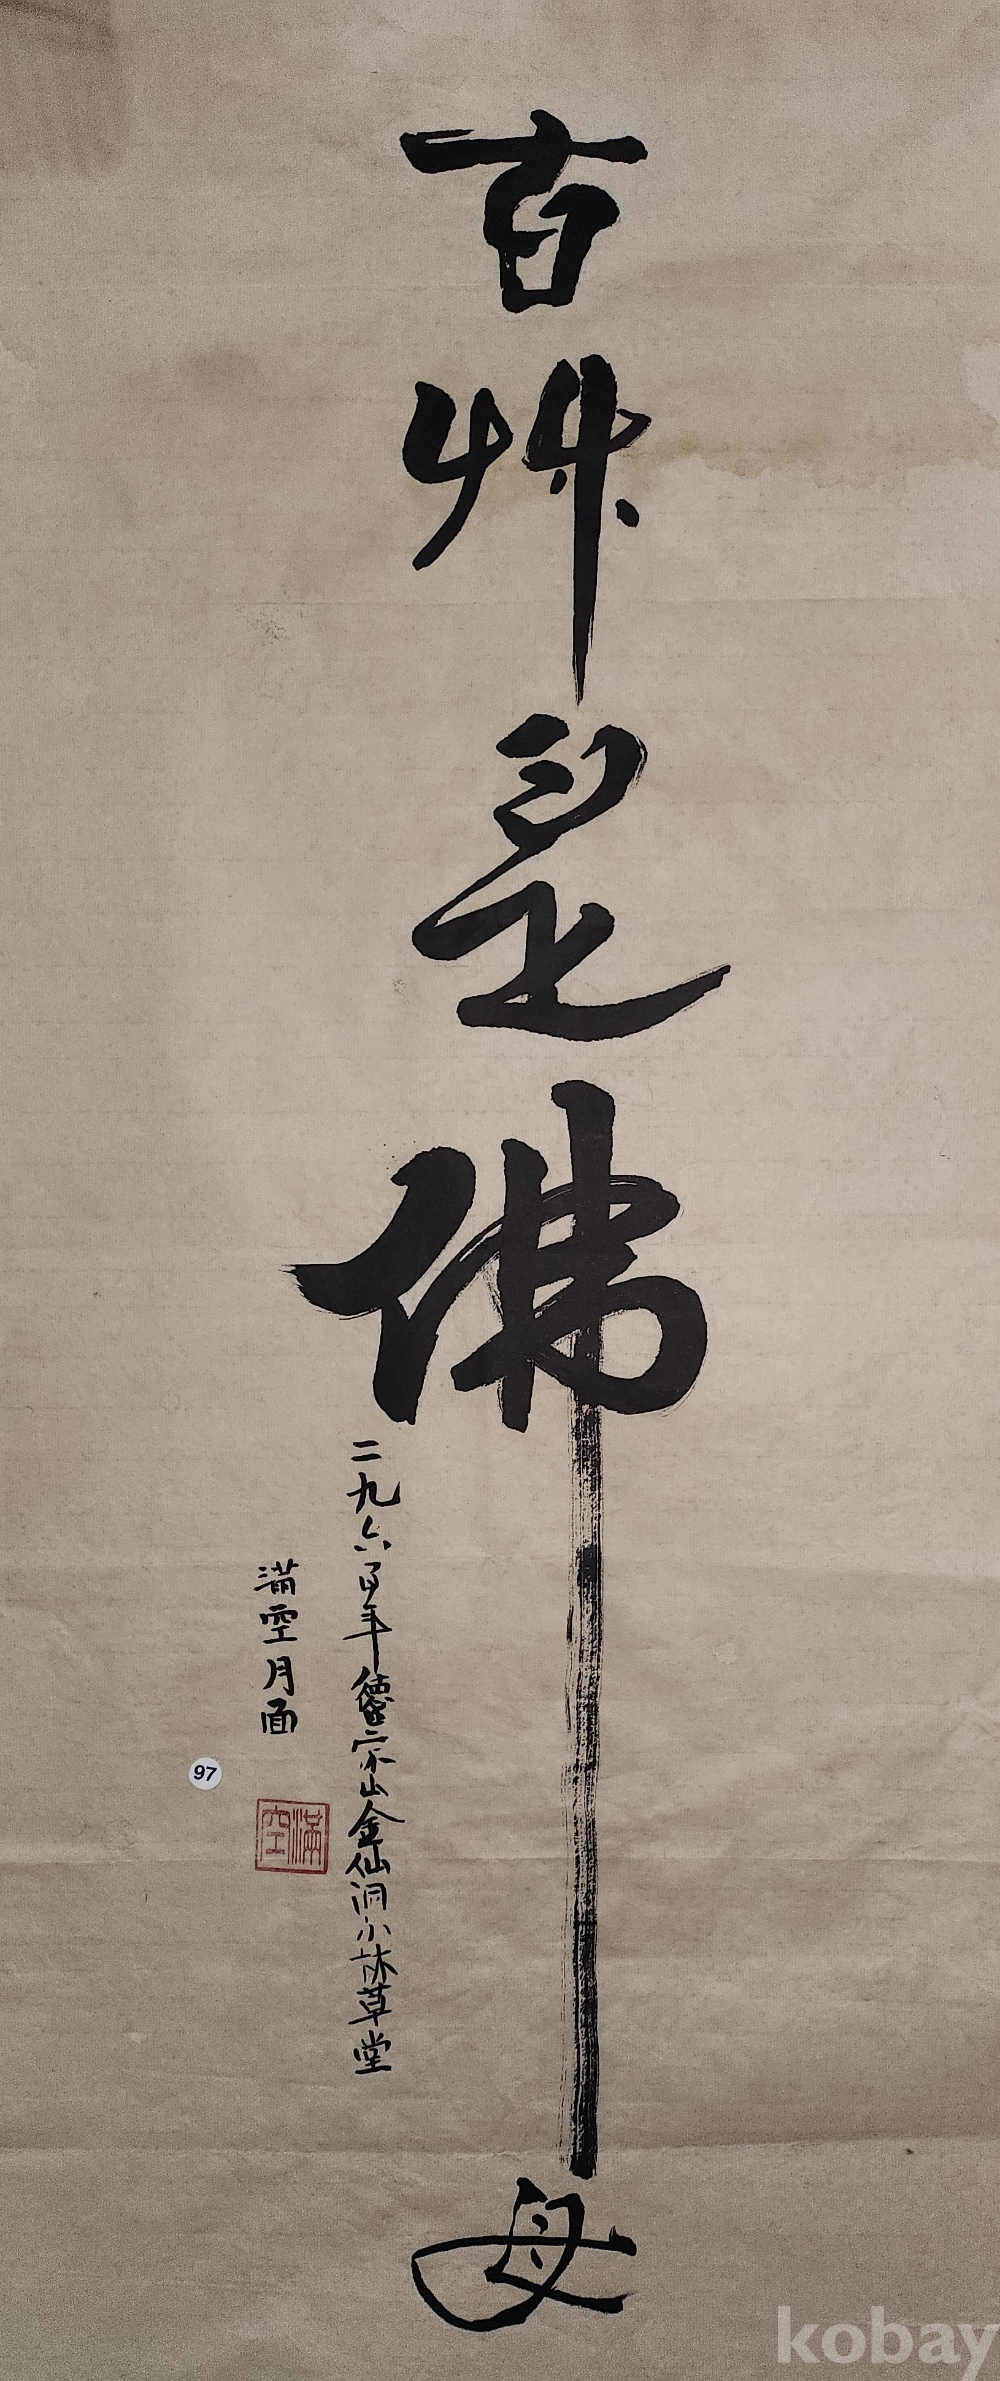 百艸是佛母
二九六百年德宗山金仙洞小林草堂
滿空月面
滿空
97
kobay